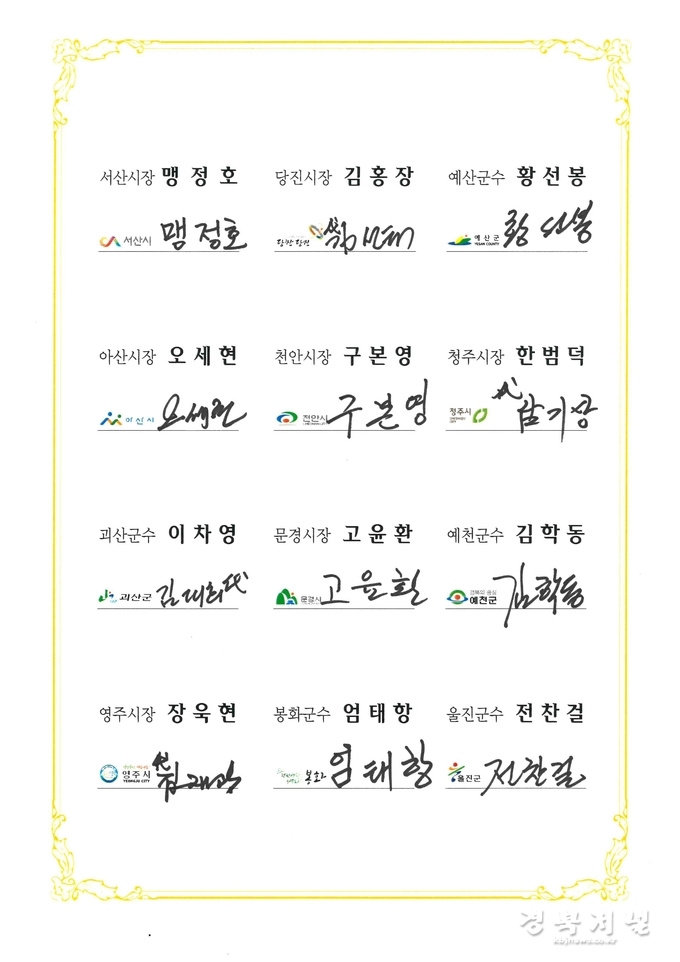 서산시장 맹정호 당진시장 김홍장 예산군수 황선봉
서산시 맹정호 예산군 황선봉
YESAN COUNTY
아산시장 오세현 천안시장 구본영 청주시장 한범덕
아산시 오세현 천안시 구본영 청주시 代
괴산군수 이차영 문경시장 고윤환 예천군수 김학동
괴산군 김대희 代 문경시 고윤환 예천군 김학동
영주시장 장욱현 봉화군수 엄태항 울진군수 전찬걸
영주시 代 봉화 엄태항 울진군 전찬걸
YEONGJU CITY
경북저널
kbjnews.co.kr